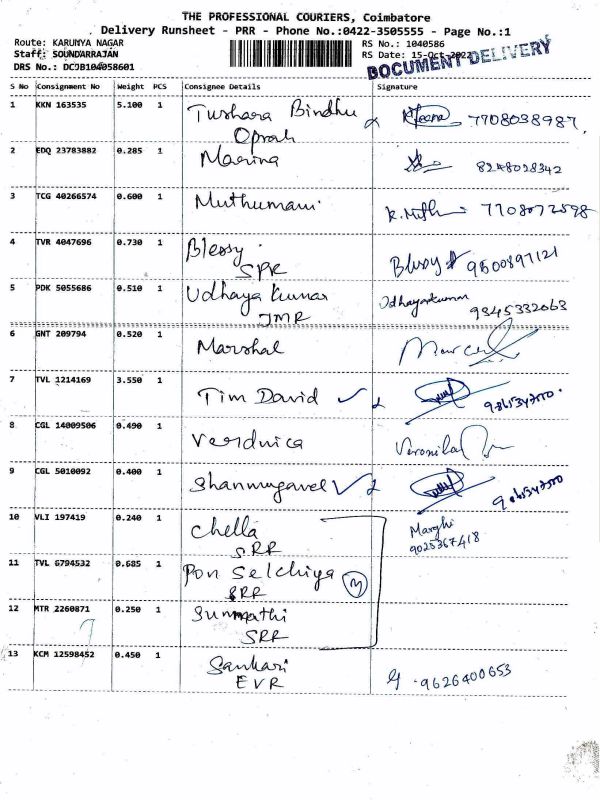 THE PROFESSIONAL COURIERS, Coimbatore
Delivery Runsheet - PRR - Phone No.:0422-3505555 - Page No.:1
Route: KARUNYA NAGAR RS No.: 1040586
Staff: SOUNDARRAJAN RS Date: 15-Oct-2022
DRS No.: DCJB104058601 DOCUMENT DELIVERY
S No Consignment No Weight PCS Consignee Details Signature
1 KKN 163535 5.100 1 Tushara Bindhu 7708038987
Oprah
2 EDQ 23783882 0.285 1 Marina 8248028342
3 TCG 40266574 0.600 1 Muthumani K.Muth 7708072598
4 TVR 4047696 0.730 1 Blessy Blessy 9500897121
SPR
5 PDK 5055686 0.510 1 Udhaya Kumar Udhayakumar 9345332063
JMR
6 GNT 209794 0.520 1 Marshal
7 TVL 1214169 3.550 1 Tim David
8 CGL 14009506 0.490 1 Veronica
9 CGL 5010092 0.400 1 Shanmugavel
10 VLI 197419 0.240 1 Chella Marghi
SRR 9025367418
11 TVL 6794532 0.685 1 Pon Selchiya
SRR
12 MTR 2260871 0.250 1 Summathi
SRR
13 KCM 12598452 0.450 1 Sankari 9626400653
EVR